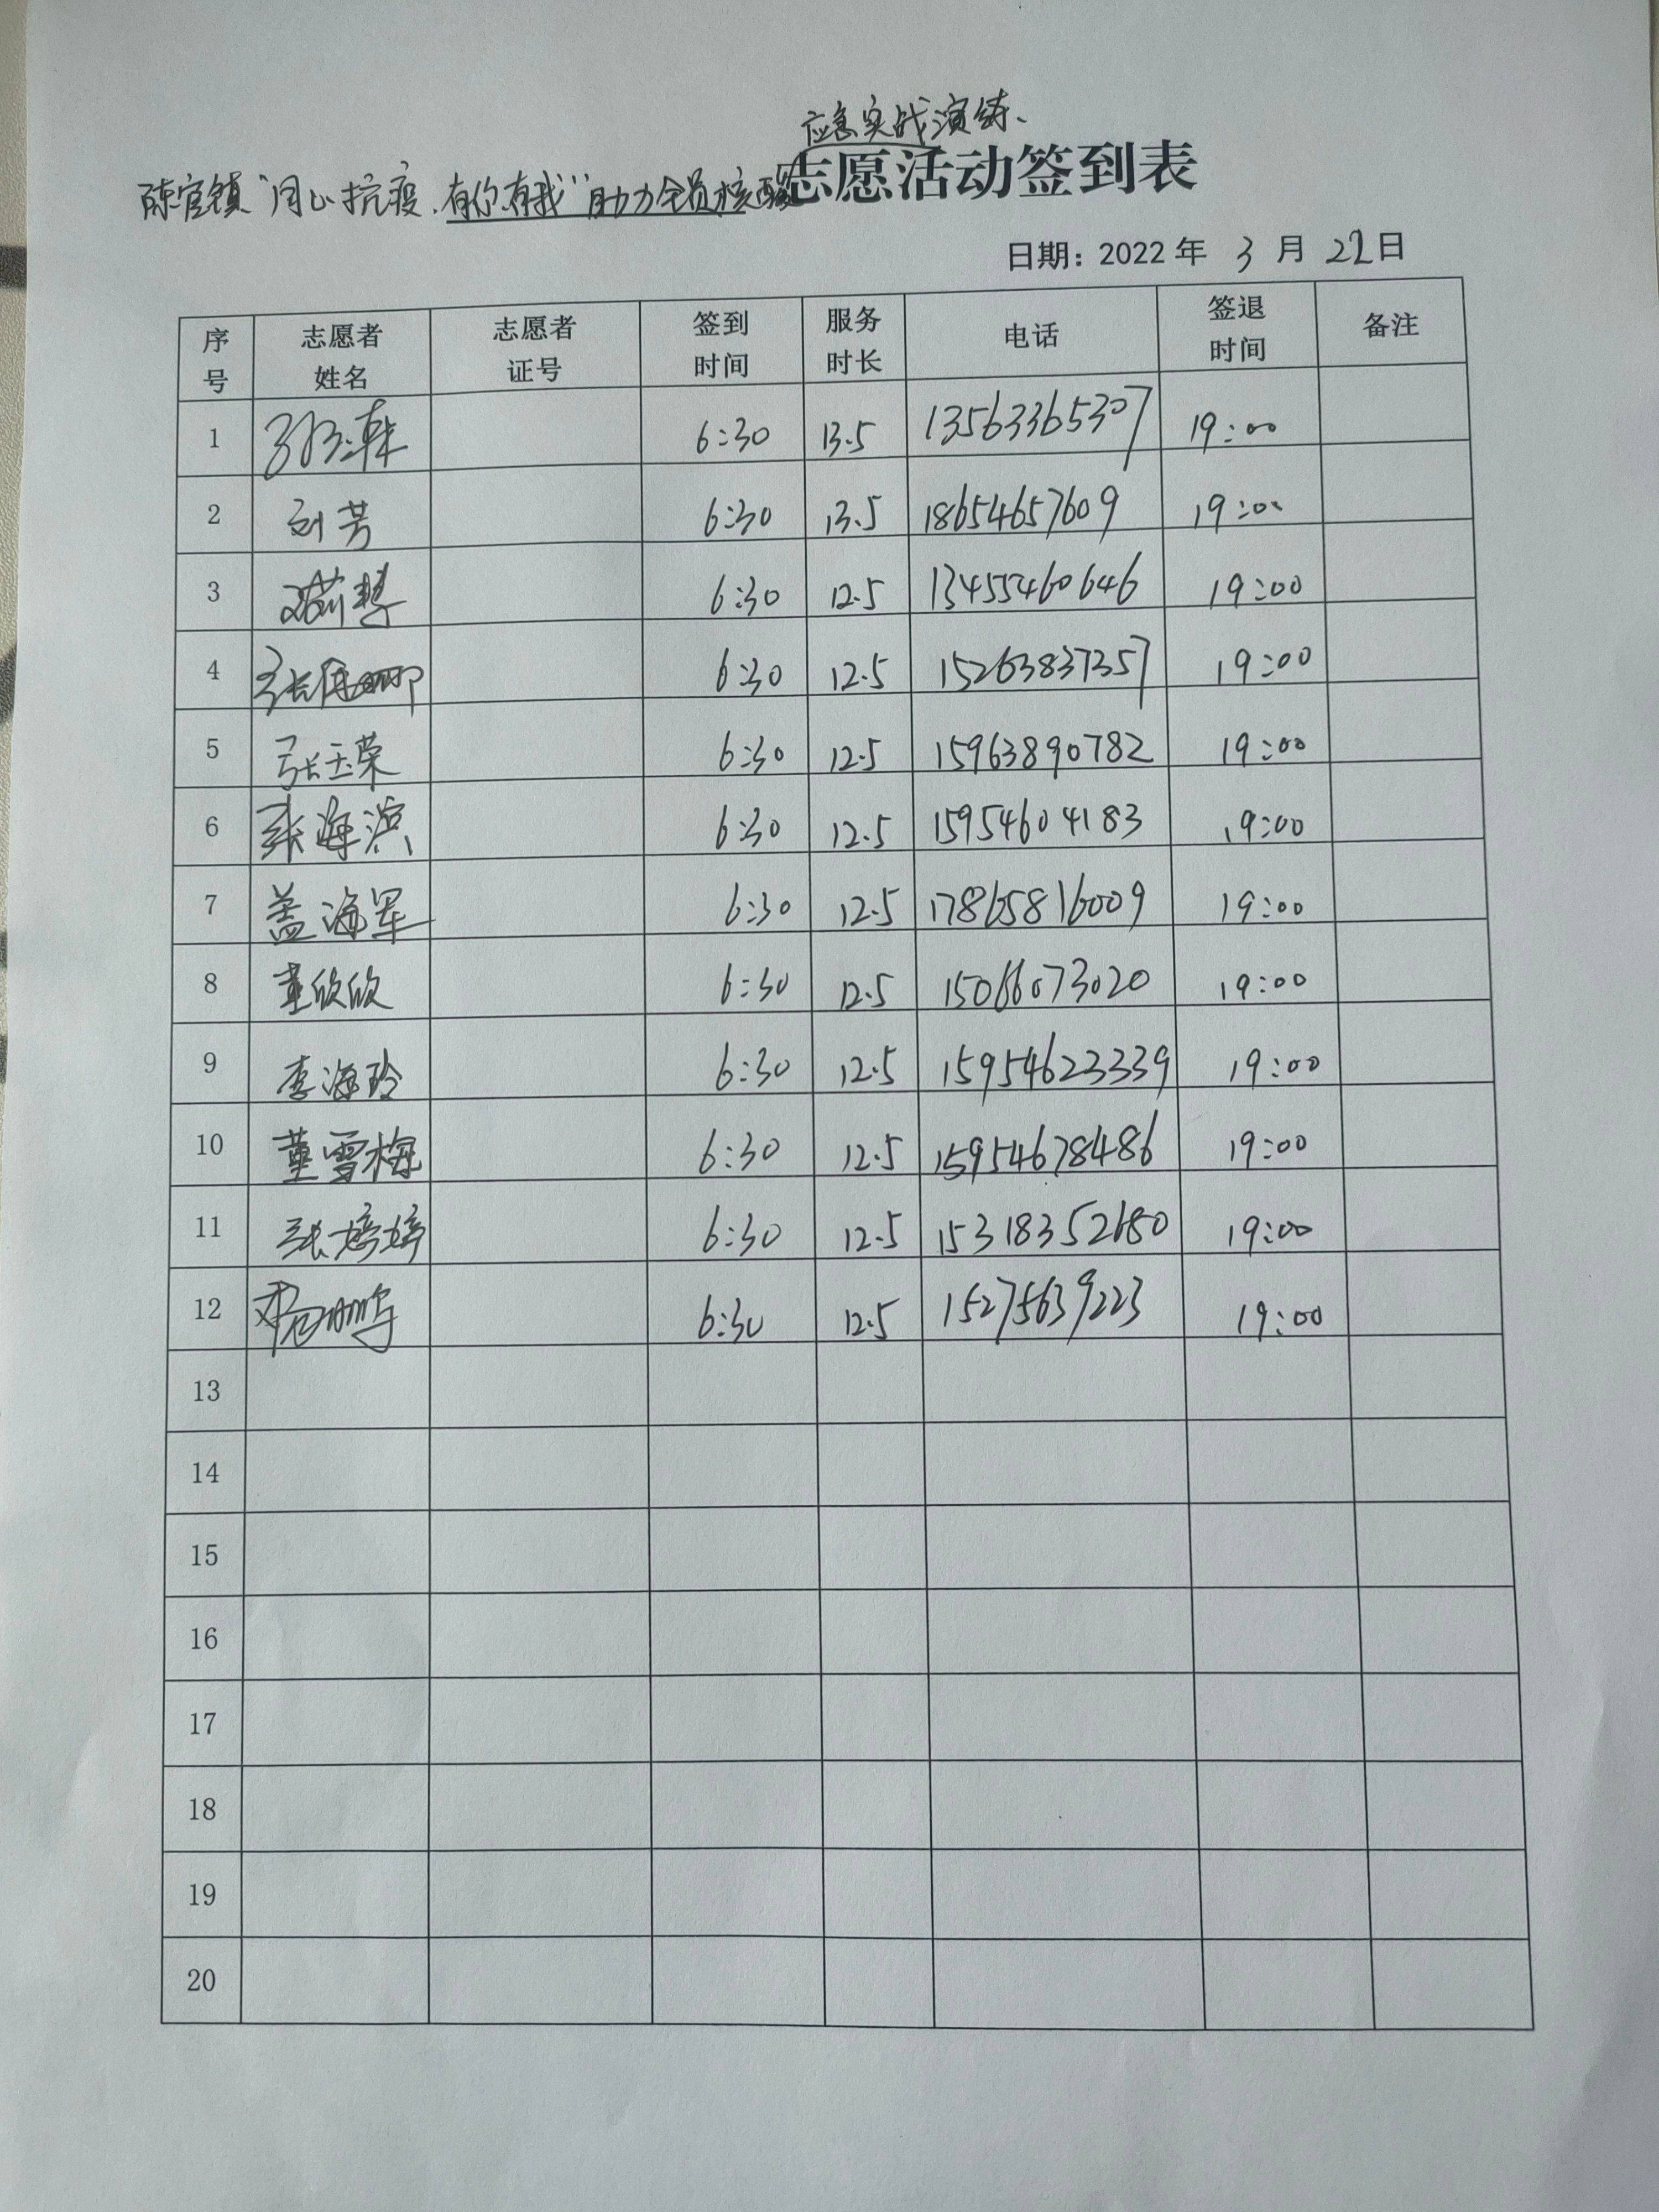 应急实战演练、
陈官镇“同心抗疫、有你有我”助力全员核酸志愿活动签到表
日期：2022年 3 月 22日
序号 志愿者姓名 志愿者证号 签到时间 服务时长 电话 签退时间 备注
1 6:30 13.5 13563365307 19:00
2 刘芳 6:30 13.5 18654657609 19:00
3 6:30 12.5 13455460646 19:00
4 6:30 12.5 15263837357 19:00
5 张玉荣 6:30 12.5 15963890782 19:00
6 张海滨 6:30 12.5 15954604183 19:00
7 盖海军 6:30 12.5 17865816009 19:00
8 董欣欣 6:30 12.5 15066073020 19:00
9 李海玲 6:30 12.5 15954623339 19:00
10 董雪梅 6:30 12.5 15954678486 19:00
11 张婷婷 6:30 12.5 15318352680 19:00
12 6:30 12.5 15275639223 19:00
13
14
15
16
17
18
19
20